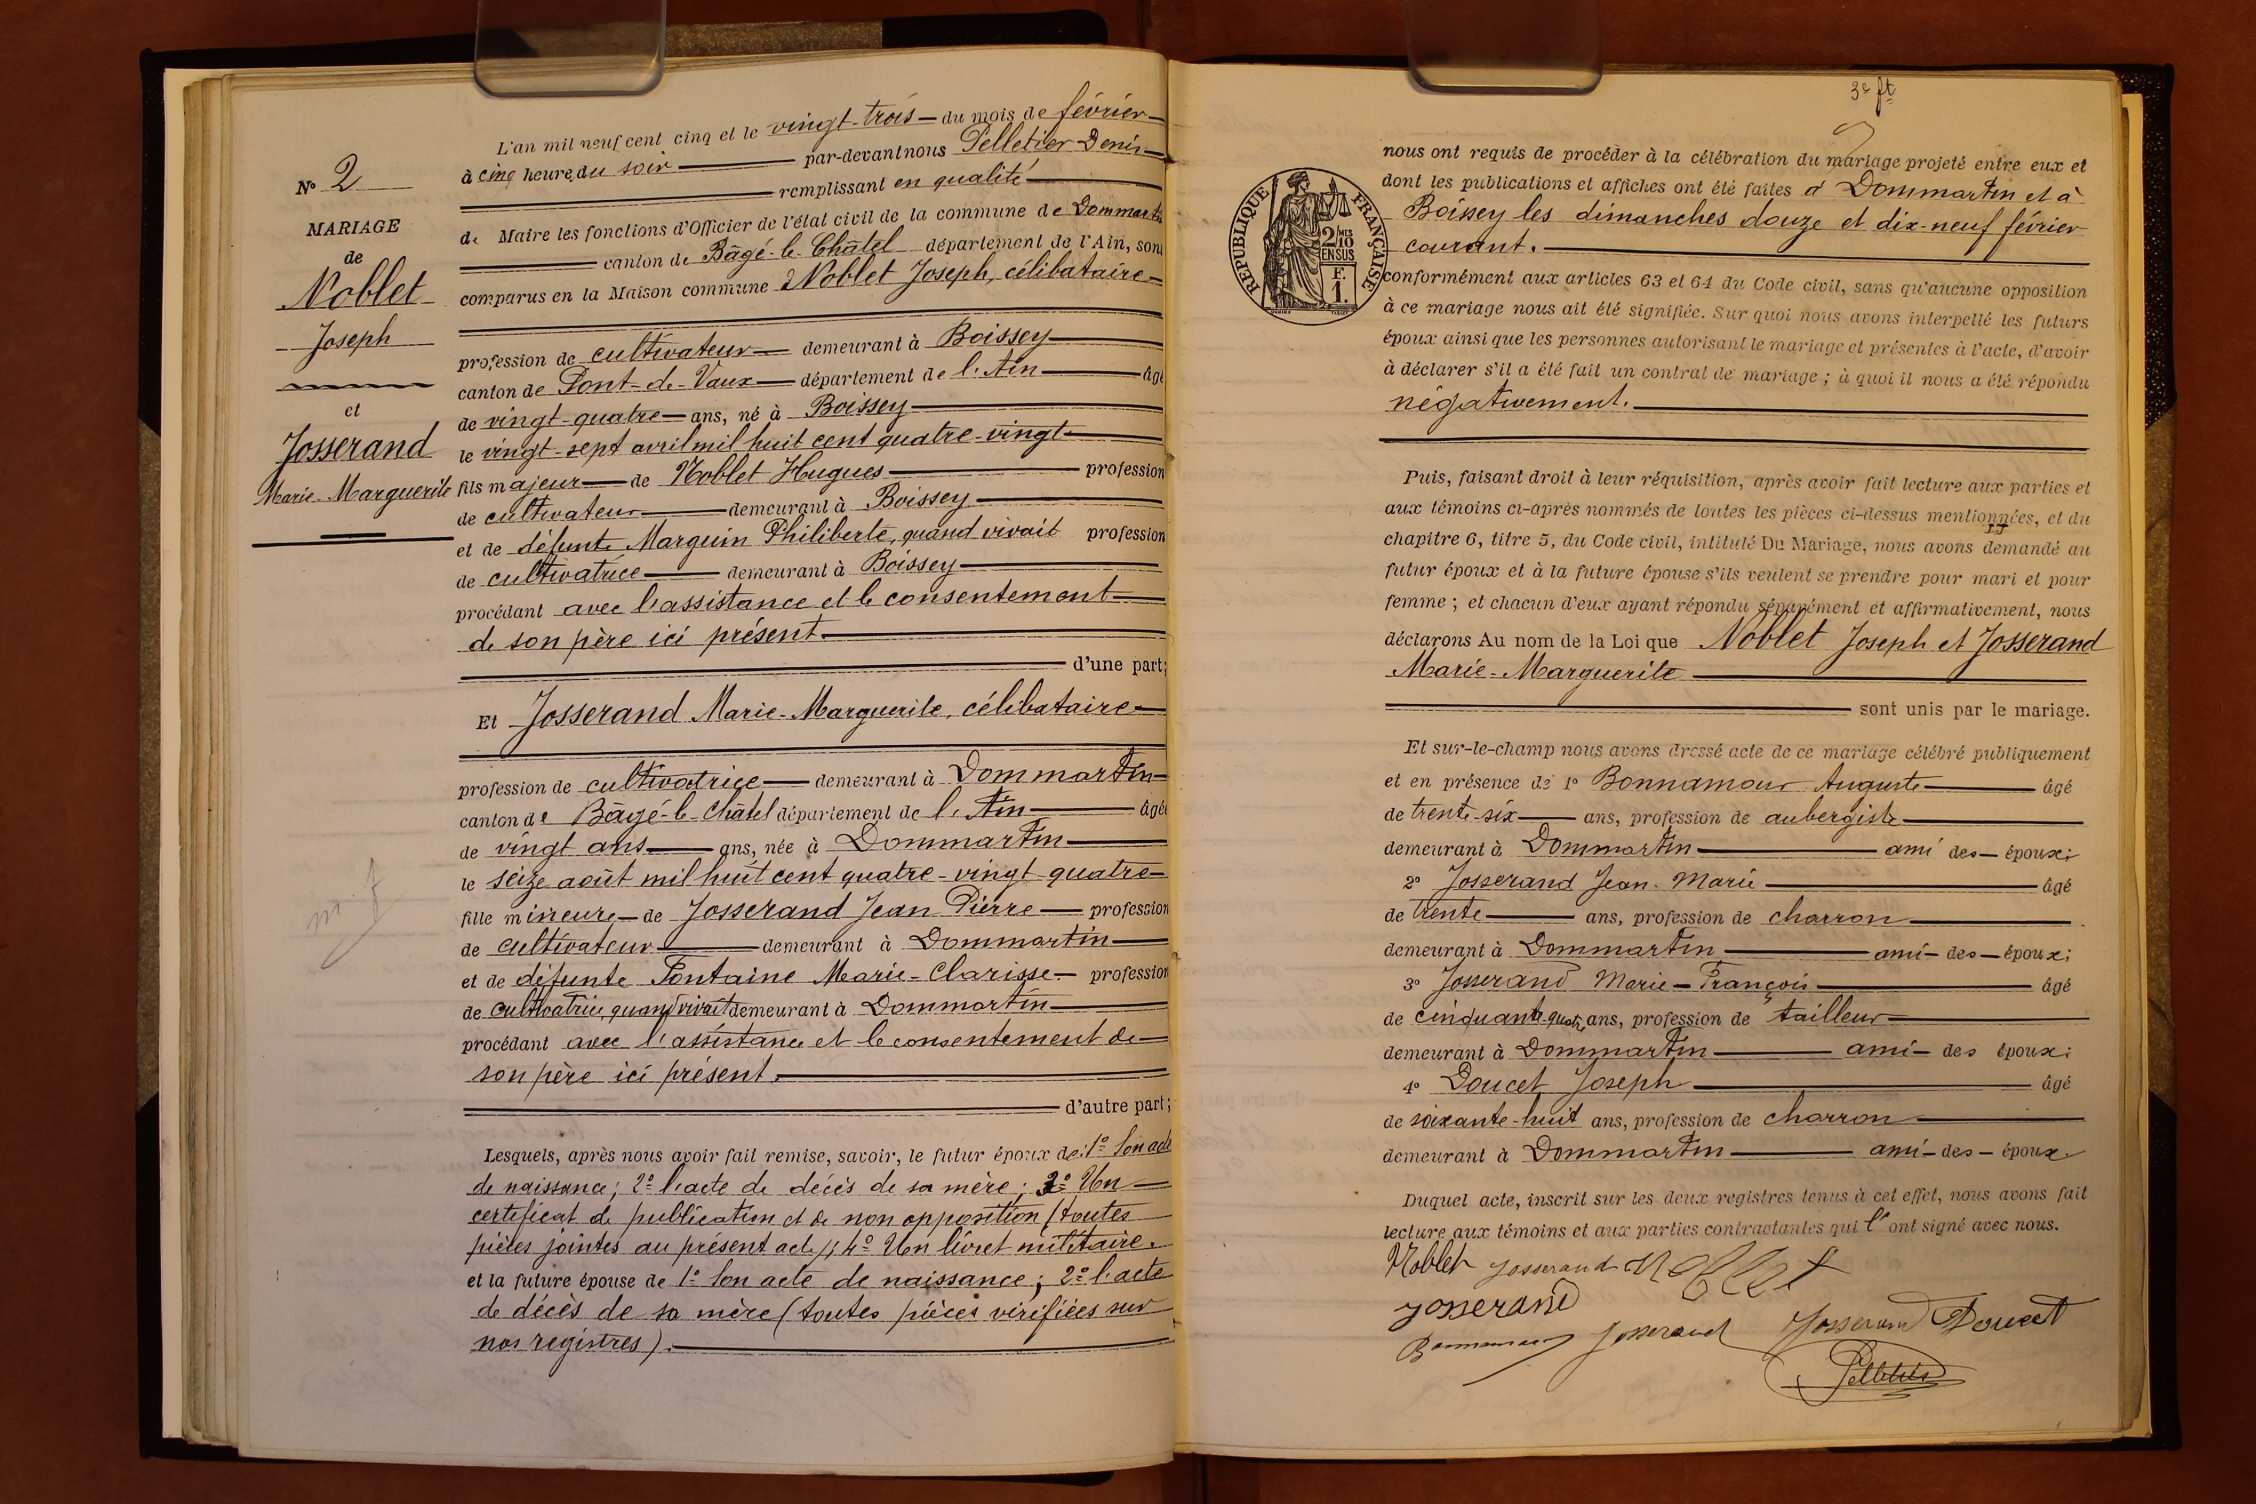 N° 2
MARIAGE
de
Noblet
Joseph
et
Josserand
Marie-Marguerite
L'an mil neuf cent cinq et le vingt-trois du mois de février
à cinq heure du soir par-devant nous Pelletier Denis
remplissant en qualité
de Maire les fonctions d'Officier de l'état civil de la commune de Dommartin
canton de Bâgé-le-Châtel département de l'Ain, sont
comparus en la Maison commune Noblet Joseph, célibataire
profession de cultivateur demeurant à Boissey
canton de Pont-de-Vaux département de l'Ain âgé
de vingt-quatre ans, né à Boissey
le vingt-sept avril mil huit cent quatre-vingt
fils majeur de Noblet Hugues profession
de cultivateur demeurant à Boissey
et de défunte Marguin Philiberte, quand vivait profession
de cultivatrice demeurant à Boissey
procédant avec l'assistance et le consentement
de son père ici présent
d'une part;
Et Josserand Marie-Marguerite, célibataire
profession de cultivatrice demeurant à Dommartin
canton de Bâgé-le-Châtel département de l'Ain âgée
de vingt ans ans, née à Dommartin
le seize août mil huit cent quatre-vingt-quatre
fille mineure de Josserand Jean Pierre profession
de cultivateur demeurant à Dommartin
et de défunte Fontaine Marie-Clarisse profession
de cultivatrice, quand vivait demeurant à Dommartin
procédant avec l'assistance et le consentement de
son père ici présent.
d'autre part;
Lesquels, après nous avoir fait remise, savoir, le futur époux de: 1° Son acte
de naissance; 2° l'acte de décès de sa mère; 3° Un
certificat de publication et de non opposition (toutes
pièces jointes au présent acte); 4° Un livret militaire.
et la future épouse de 1° Son acte de naissance; 2° l'acte
de décès de sa mère (toutes pièces vérifiées sur
nos registres).
3e ft
REPUBLIQUE FRANÇAISE
2/10
EN SUS
F.
1.
nous ont requis de procéder à la célébration du mariage projeté entre eux et
dont les publications et affiches ont été faites à Dommartin et à
Boissey les dimanches douze et dix-neuf février
courant.
conformément aux articles 63 et 64 du Code civil, sans qu'aucune opposition
à ce mariage nous ait été signifiée. Sur quoi nous avons interpellé les futurs
époux ainsi que les personnes autorisant le mariage et présentes à l'acte, d'avoir
à déclarer s'il a été fait un contrat de mariage; à quoi il nous a été répondu
négativement.
Puis, faisant droit à leur réquisition, après avoir fait lecture aux parties et
aux témoins ci-après nommés de toutes les pièces ci-dessus mentionnées, et du
chapitre 6, titre 5, du Code civil, intitulé Du Mariage, nous avons demandé au
futur époux et à la future épouse s'ils veulent se prendre pour mari et pour
femme; et chacun d'eux ayant répondu séparément et affirmativement, nous
déclarons Au nom de la Loi que Noblet Joseph et Josserand
Marie-Marguerite
sont unis par le mariage.
Et sur-le-champ nous avons dressé acte de ce mariage célébré publiquement
et en présence de 1° Bonnamour Auguste âgé
de trente-six ans, profession de aubergiste
demeurant à Dommartin ami des époux;
2° Josserand Jean-Marie âgé
de trente ans, profession de charron
demeurant à Dommartin ami des époux;
3° Josserand Marie-François âgé
de cinquante-quatre ans, profession de tailleur
demeurant à Dommartin ami des époux;
4° Doucet Joseph âgé
de soixante-huit ans, profession de charron
demeurant à Dommartin ami des époux.
Duquel acte, inscrit sur les deux registres tenus à cet effet, nous avons fait
lecture aux témoins et aux parties contractantes qui l' ont signé avec nous.
Noblet Josserand Noblet
Josserand
Bonnamour Josserand Josserand Doucet
Pelletier